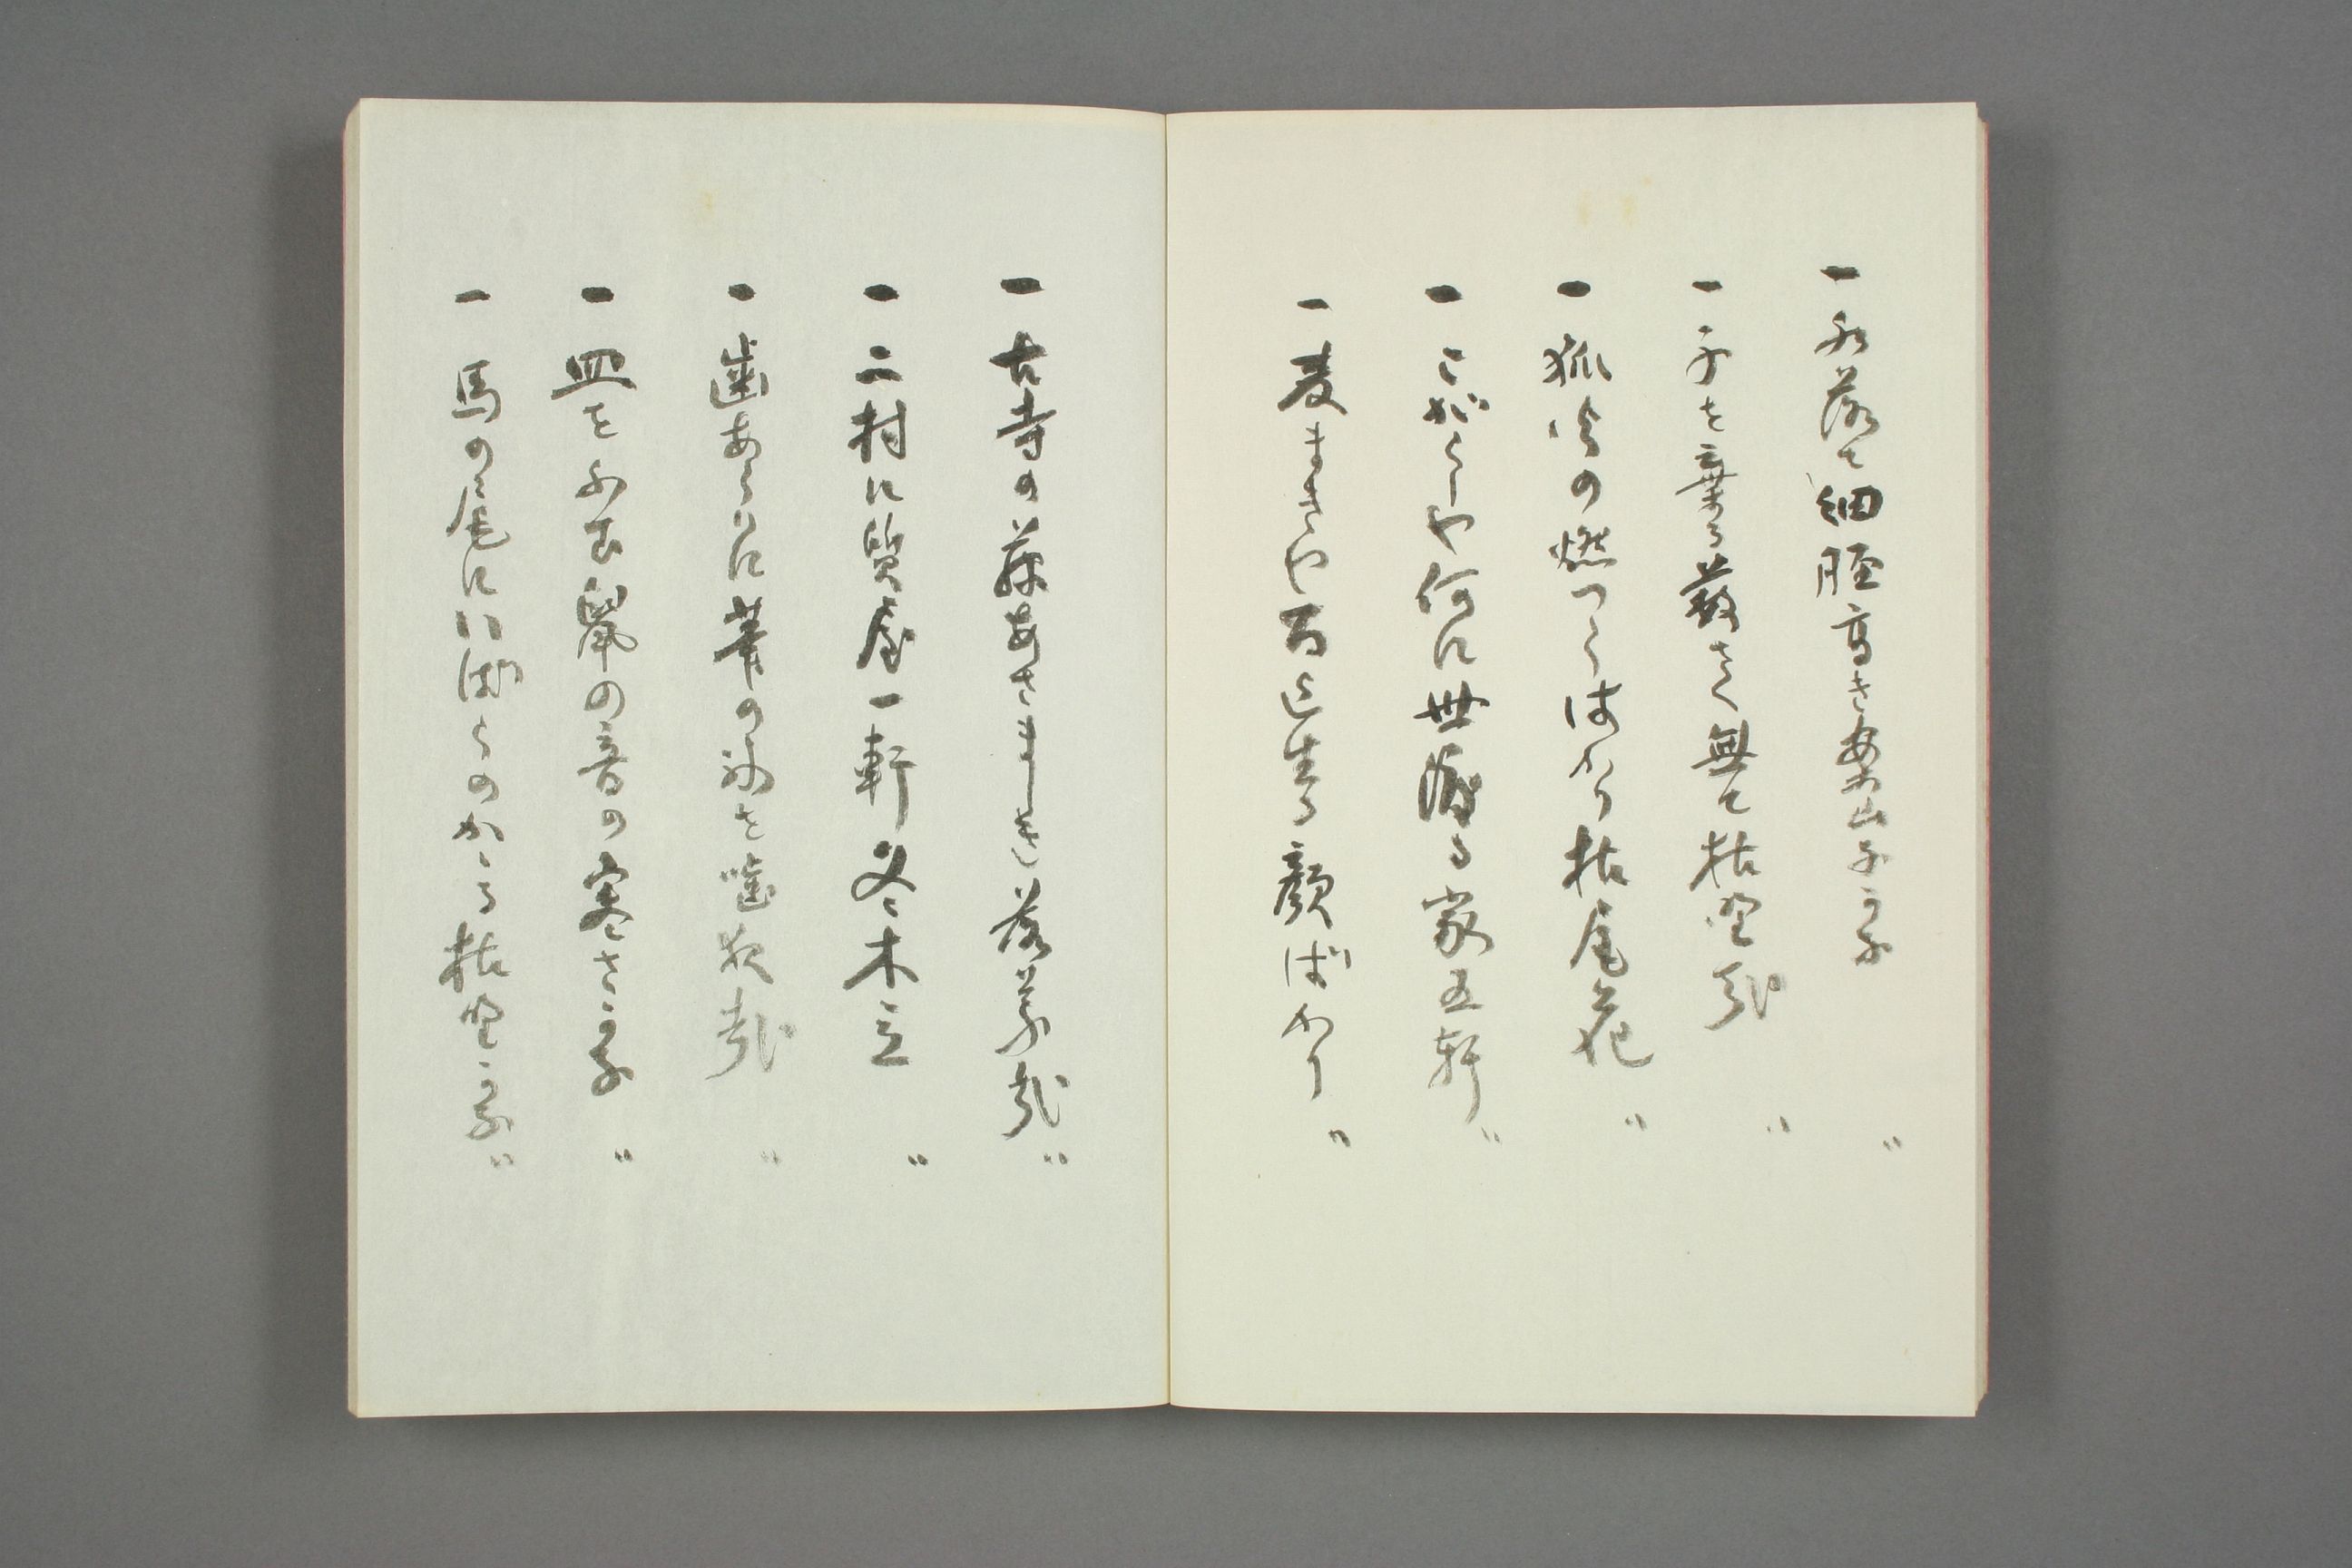 一 水落て細脛高き案山子かな 〃
一 子を棄る藪さへ無て枯野哉 〃
一 狐火の燃つくばかり枯尾花 〃
一 こがらしや何に世渡る家五軒 〃
一 麦まきや百迄生る顔ばかり 〃
一 古寺の藤あさましき落葉哉 〃
一 二村に質屋一軒冬木立 〃
一 歯あらはに筆の氷を噛夜哉 〃
一 皿を踏鼠の音の寒さかな 〃
一 馬の尾にいばらのかゝる枯野かな 〃